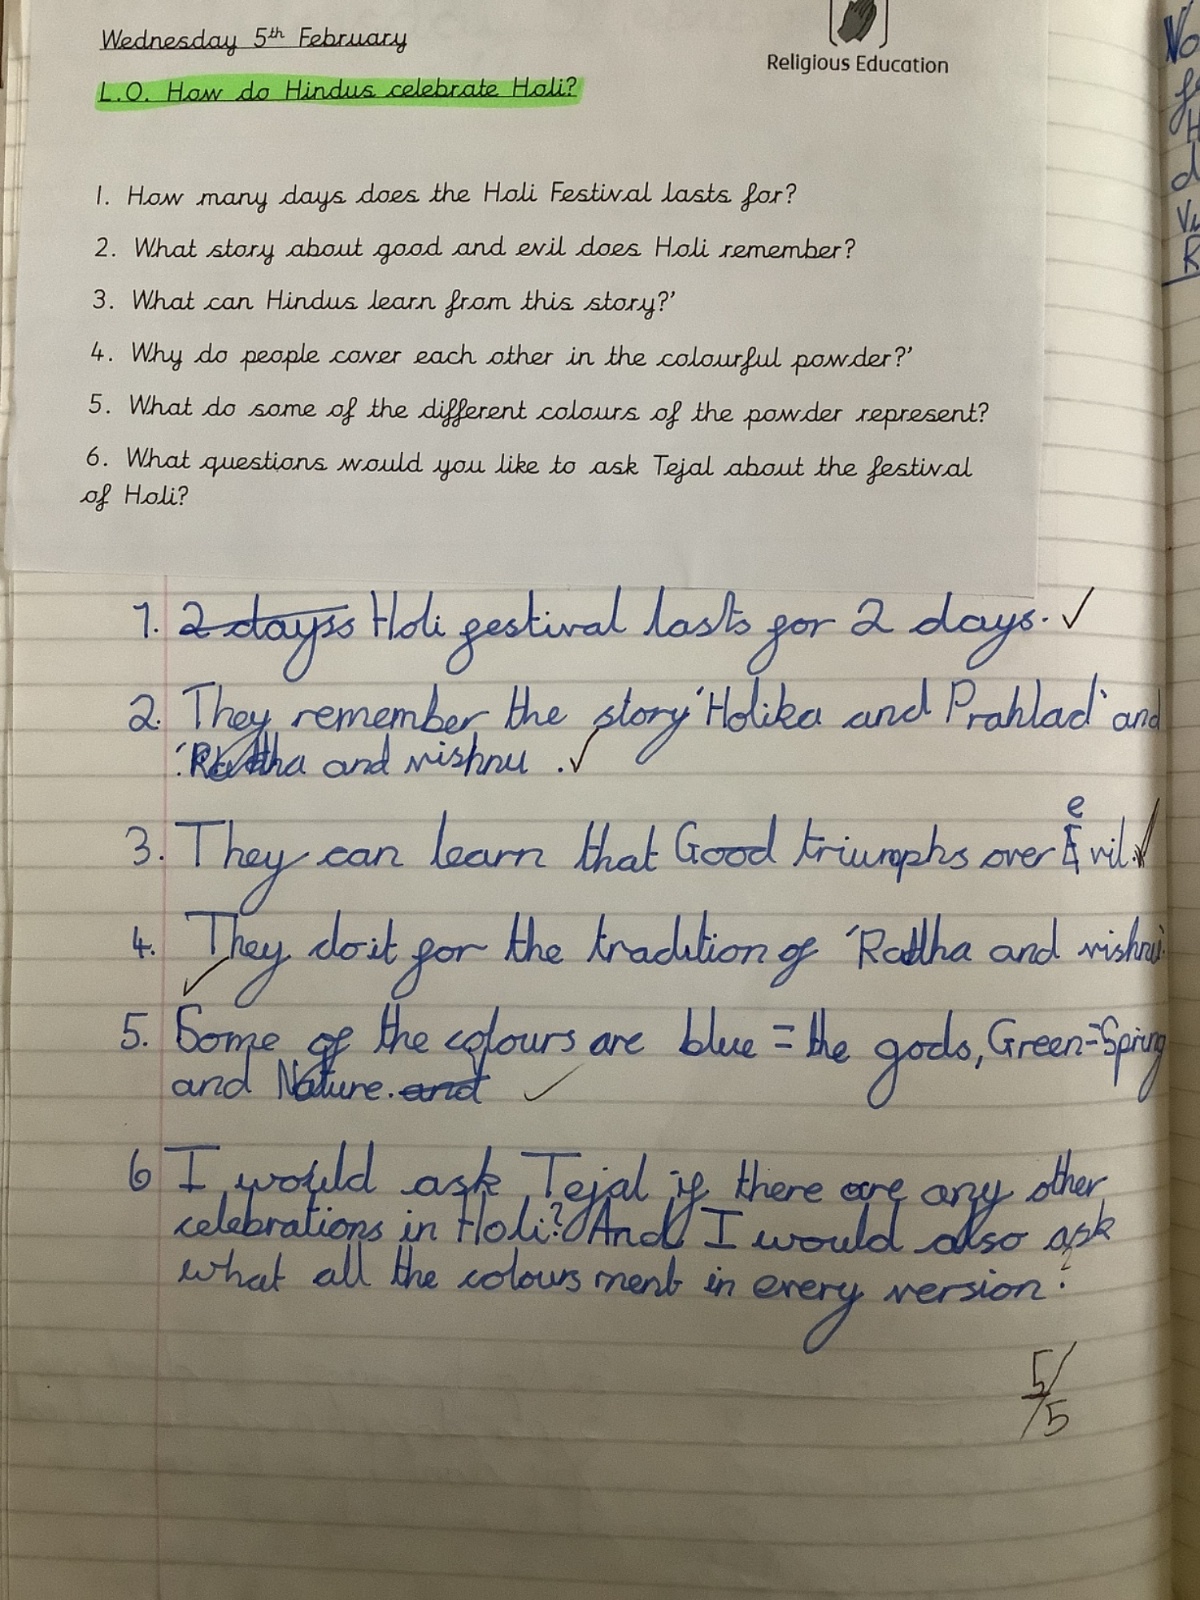 Wednesday 5th February
Religious Education
L.O. How do Hindus celebrate Holi?
1. How many days does the Holi Festival lasts for?
2. What story about good and evil does Holi remember?
3. What can Hindus learn from this story?'
4. Why do people cover each other in the colourful powder?'
5. What do some of the different colours of the powder represent?
6. What questions would you like to ask Tejal about the festival
of Holi?
1. 2 dayss Holi festival lasts for 2 days.
2. They remember the story 'Holika and Prahlad' and
'Radha and vishnu.
3. They can learn that Good triumphs over evil.
4. They do it for the tradition of 'Radha and vishnu'
5. Some of the colours are blue = the gods, Green = Spring
and Nature. and
6 I would ask Tejal if there are any other
celebrations in Holi? And I would also ask
what all the colours ment in every version?
5/5